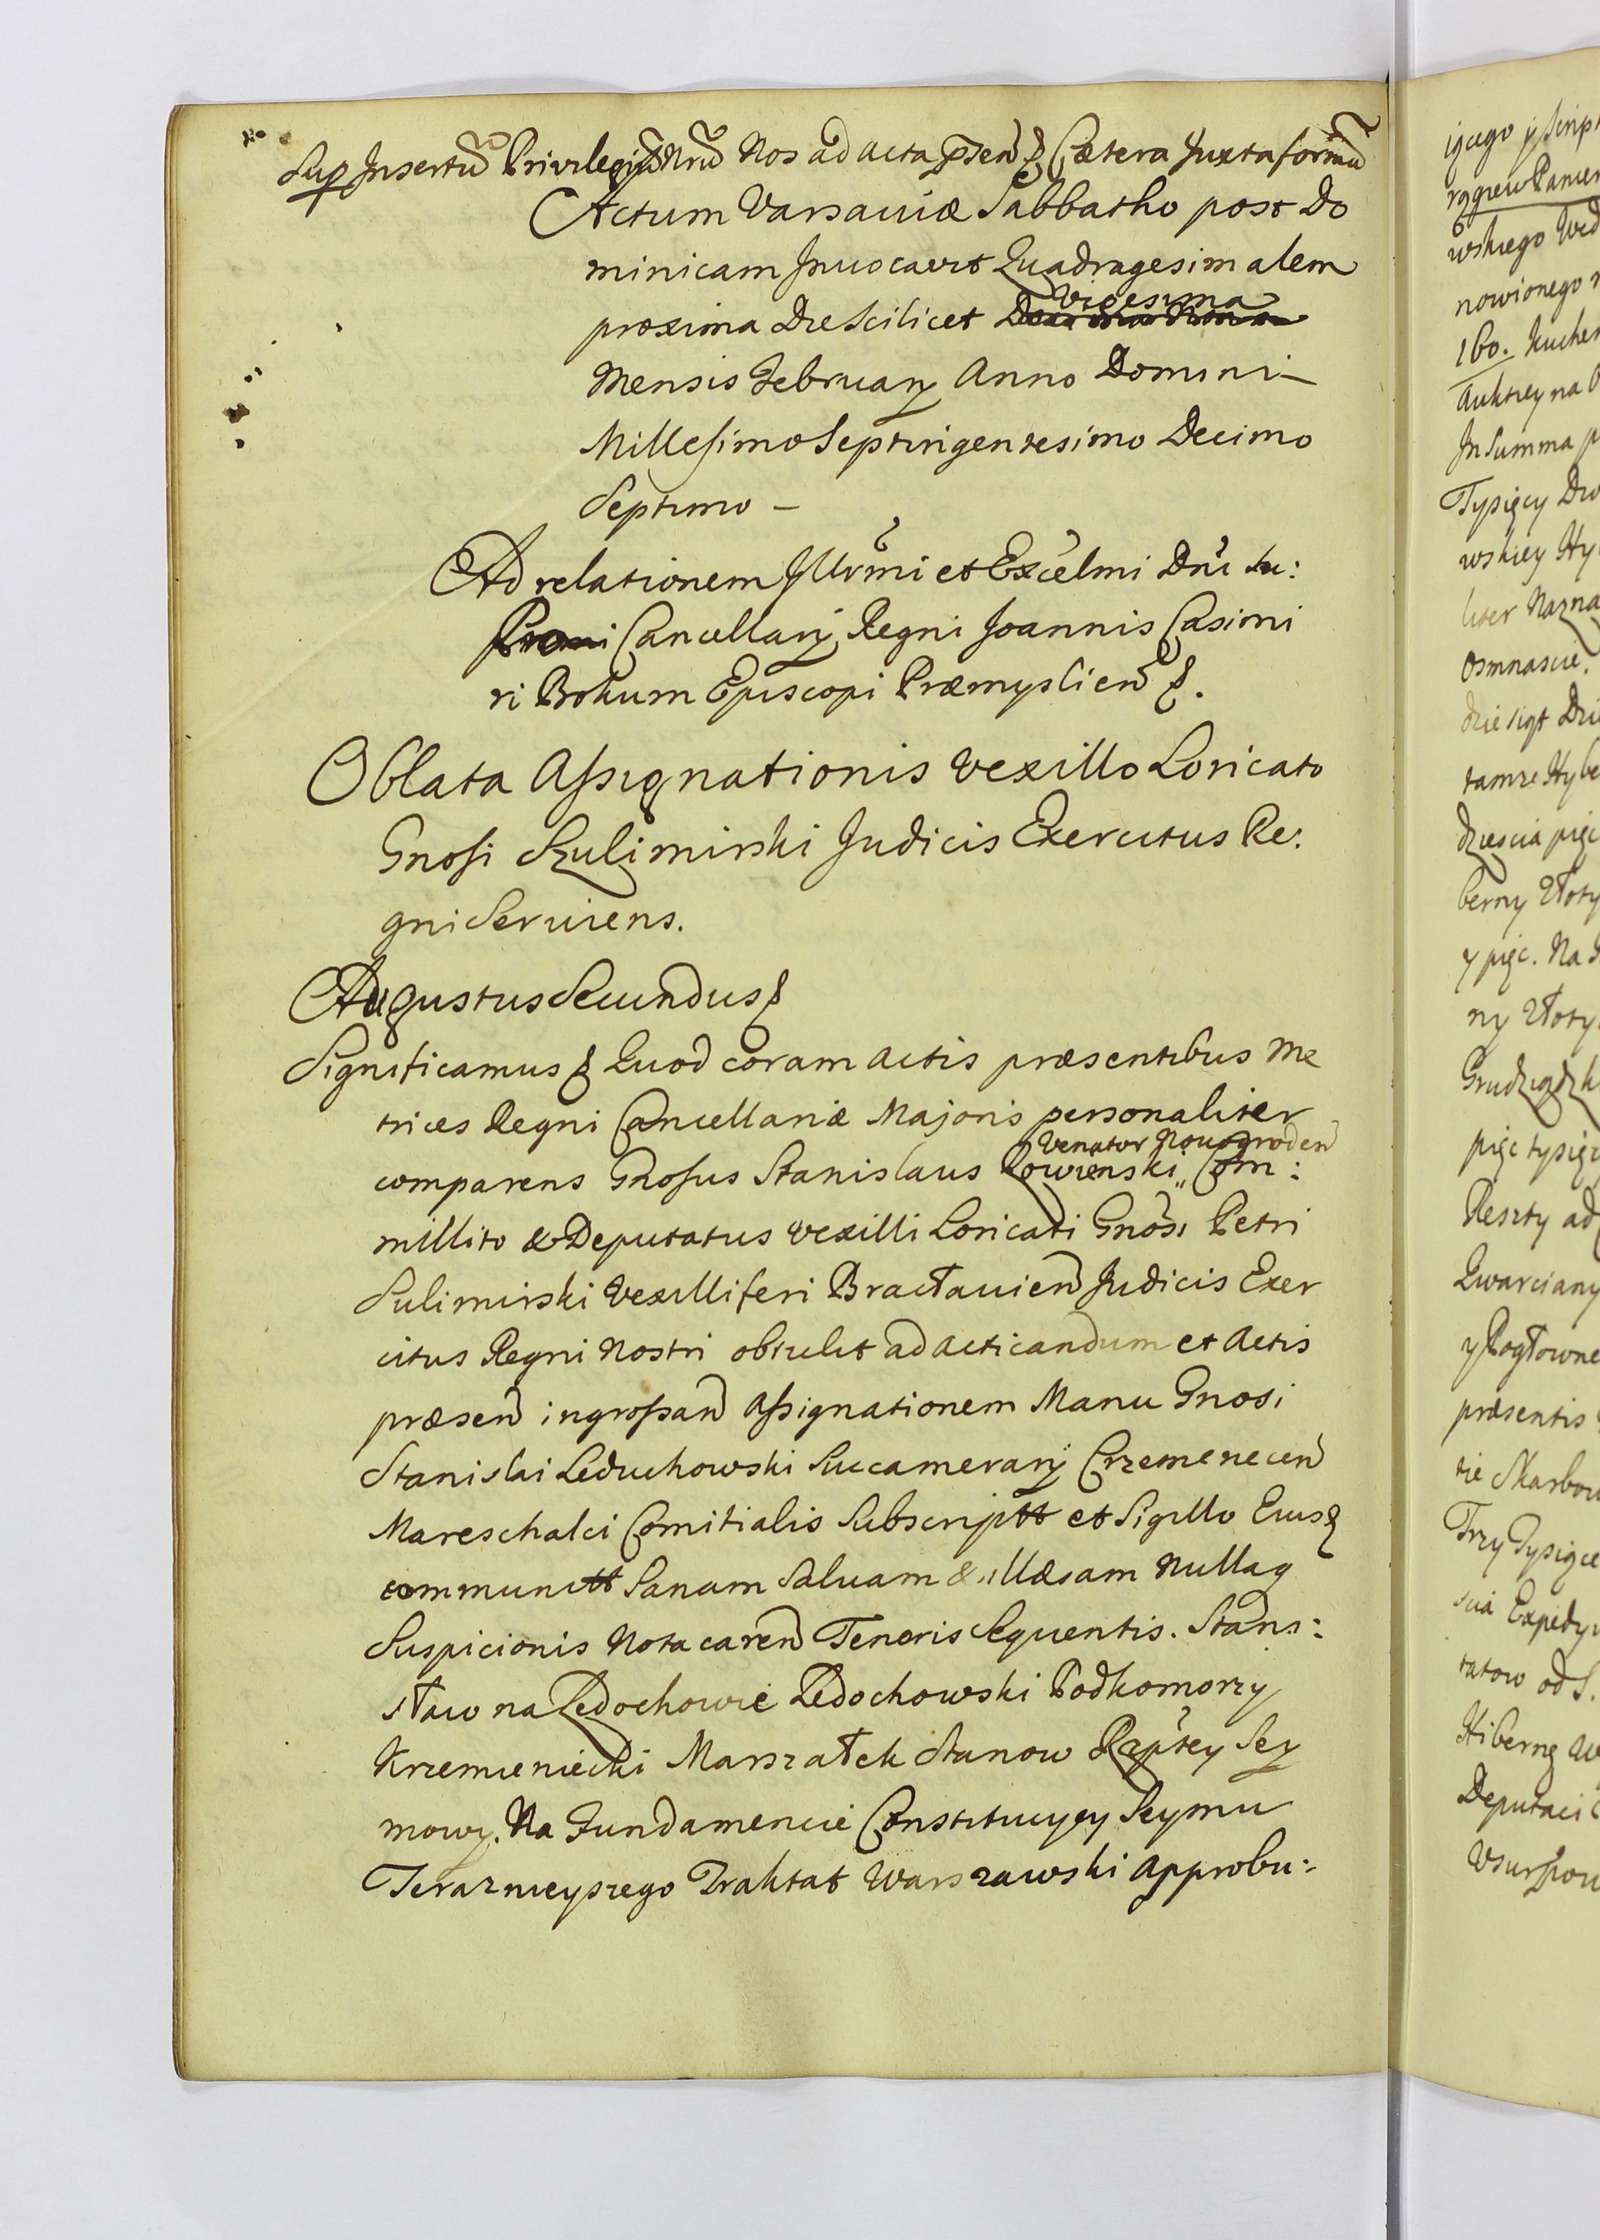 Sup Insertū Privilegiū Nrū Nos ad acta pñsen & Cætera Juxta formā
Actum Varsaviæ Sabbatho post Do
minicam Invocavit Quadragesimalem
proxima Die Scilicet Vigesima
Mensis February Anno Domini –
Millesimo Septingentesimo Decimo
Septimo –
Ad relationem Illrmi et Excelmi Dni Su:
Cancellarij Regni Joannis Casimi
ri Bokum Episcopi Præmyslien &.
Oblata Assignationis Vexillo Loricato
Gnosi Szulimirski Judicis Exercitus Re:
gni Serviens.
Augustus Secundus &
Significamus & Quod coram actis præsentibus Me
trices Regni Cancellariæ Majoris personaliter
Venator Nouogroden
comparens Gnosus Stanislaus Łowienski " Com:
millito & Deputatus vexilli Loricati Gnosi Petri
Sulimirski Vexilliferi Bracłavien Judicis Exer
citus Regni Nostri obtulit ad acticandum et actis
præsen ingrossan Assignationem Manu Gnosi
Stanislai Leduchowski Succamerarij Crzemenecen
Mareschalci Comitialis Subscriptt et Sigillo Eius &
communitt Sanam Salvam & illæsam Nullaq
Suspicionis Nota caren Tenoris Sequentis. Stani:
sław na Ledochowie Ledochowski Podkomorzy
Krzemieniecki Marszałek Stanow Rzptey Sey
mowy. Na Fundamencie Constitucyey Seymu
Teraznieyszego Traktat Warszawski Approbu:
iącego y Script
rągiew Pancer
wskiego Wed
nowionego
160. Kucher
Auktiey na
In Summa p
Tysięcy Dw
wskiey Hy
liter Nazna
Osmnascie.
dziesiąt Dzie
tamze Hybe
dziescia pięc
berny Złoty
y pięc. Na
ny Złoty
Grudziądzk
pięc tysięc
Reszty ad
Kwarciany
y Pogłowne
præsentis
tie Skarbow
Trzy Tysiące
scia Expedy
tatow od S.
Hiberne w
Deputaci
Vsurpow